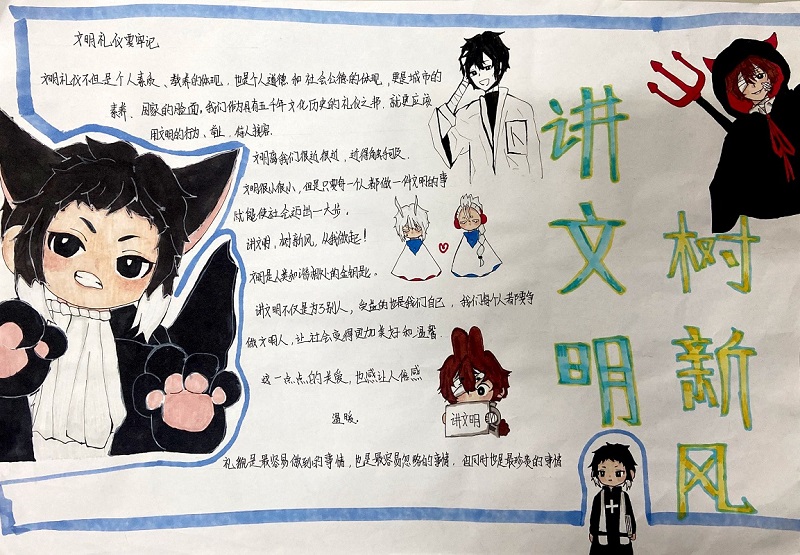 文明礼仪要牢记
文明礼仪不但是个人素质、教养的体现，也是个人道德和社会公德的体现，更是城市的
素养、国家的脸面，我们作为具有五千年文化历史的礼仪之邦，就更应该
用文明的行为、举止、待人接客.
文明离我们很近很近，近得触手可及.
文明很小很小，但是只要每一个人都做一件文明的事
就能使社会迈出一大步。
讲文明，树新风，从我做起！
文明是人类和谐相处的金钥匙。
讲文明不仅是为了别人，受益的也是我们自己，我们每个人都要争
做文明人，让社会变得更加美好和温馨.
这一点点的关爱，也感让人倍感
温暖.
礼貌是最容易做到的事情，也是最容易忽略的事情，但同时也是最珍贵的事情
讲文明
讲文明
树新风